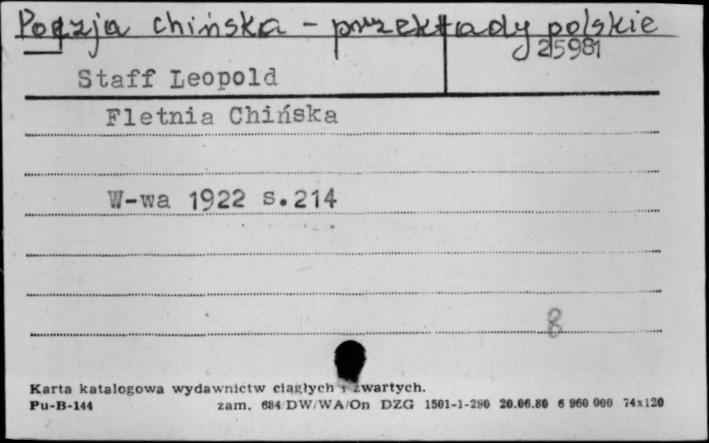 Poezja chińska - przekłady polskie
25981
Staff Leopold
Fletnia Chińska
W-wa 1922 s.214
8
Karta katalogowa wydawnictw ciągłych i zwartych.
Pu-B-144 zam. 684/DW/WA/On DZG 1501-1-290 20.06.80 6 960 000 74x120